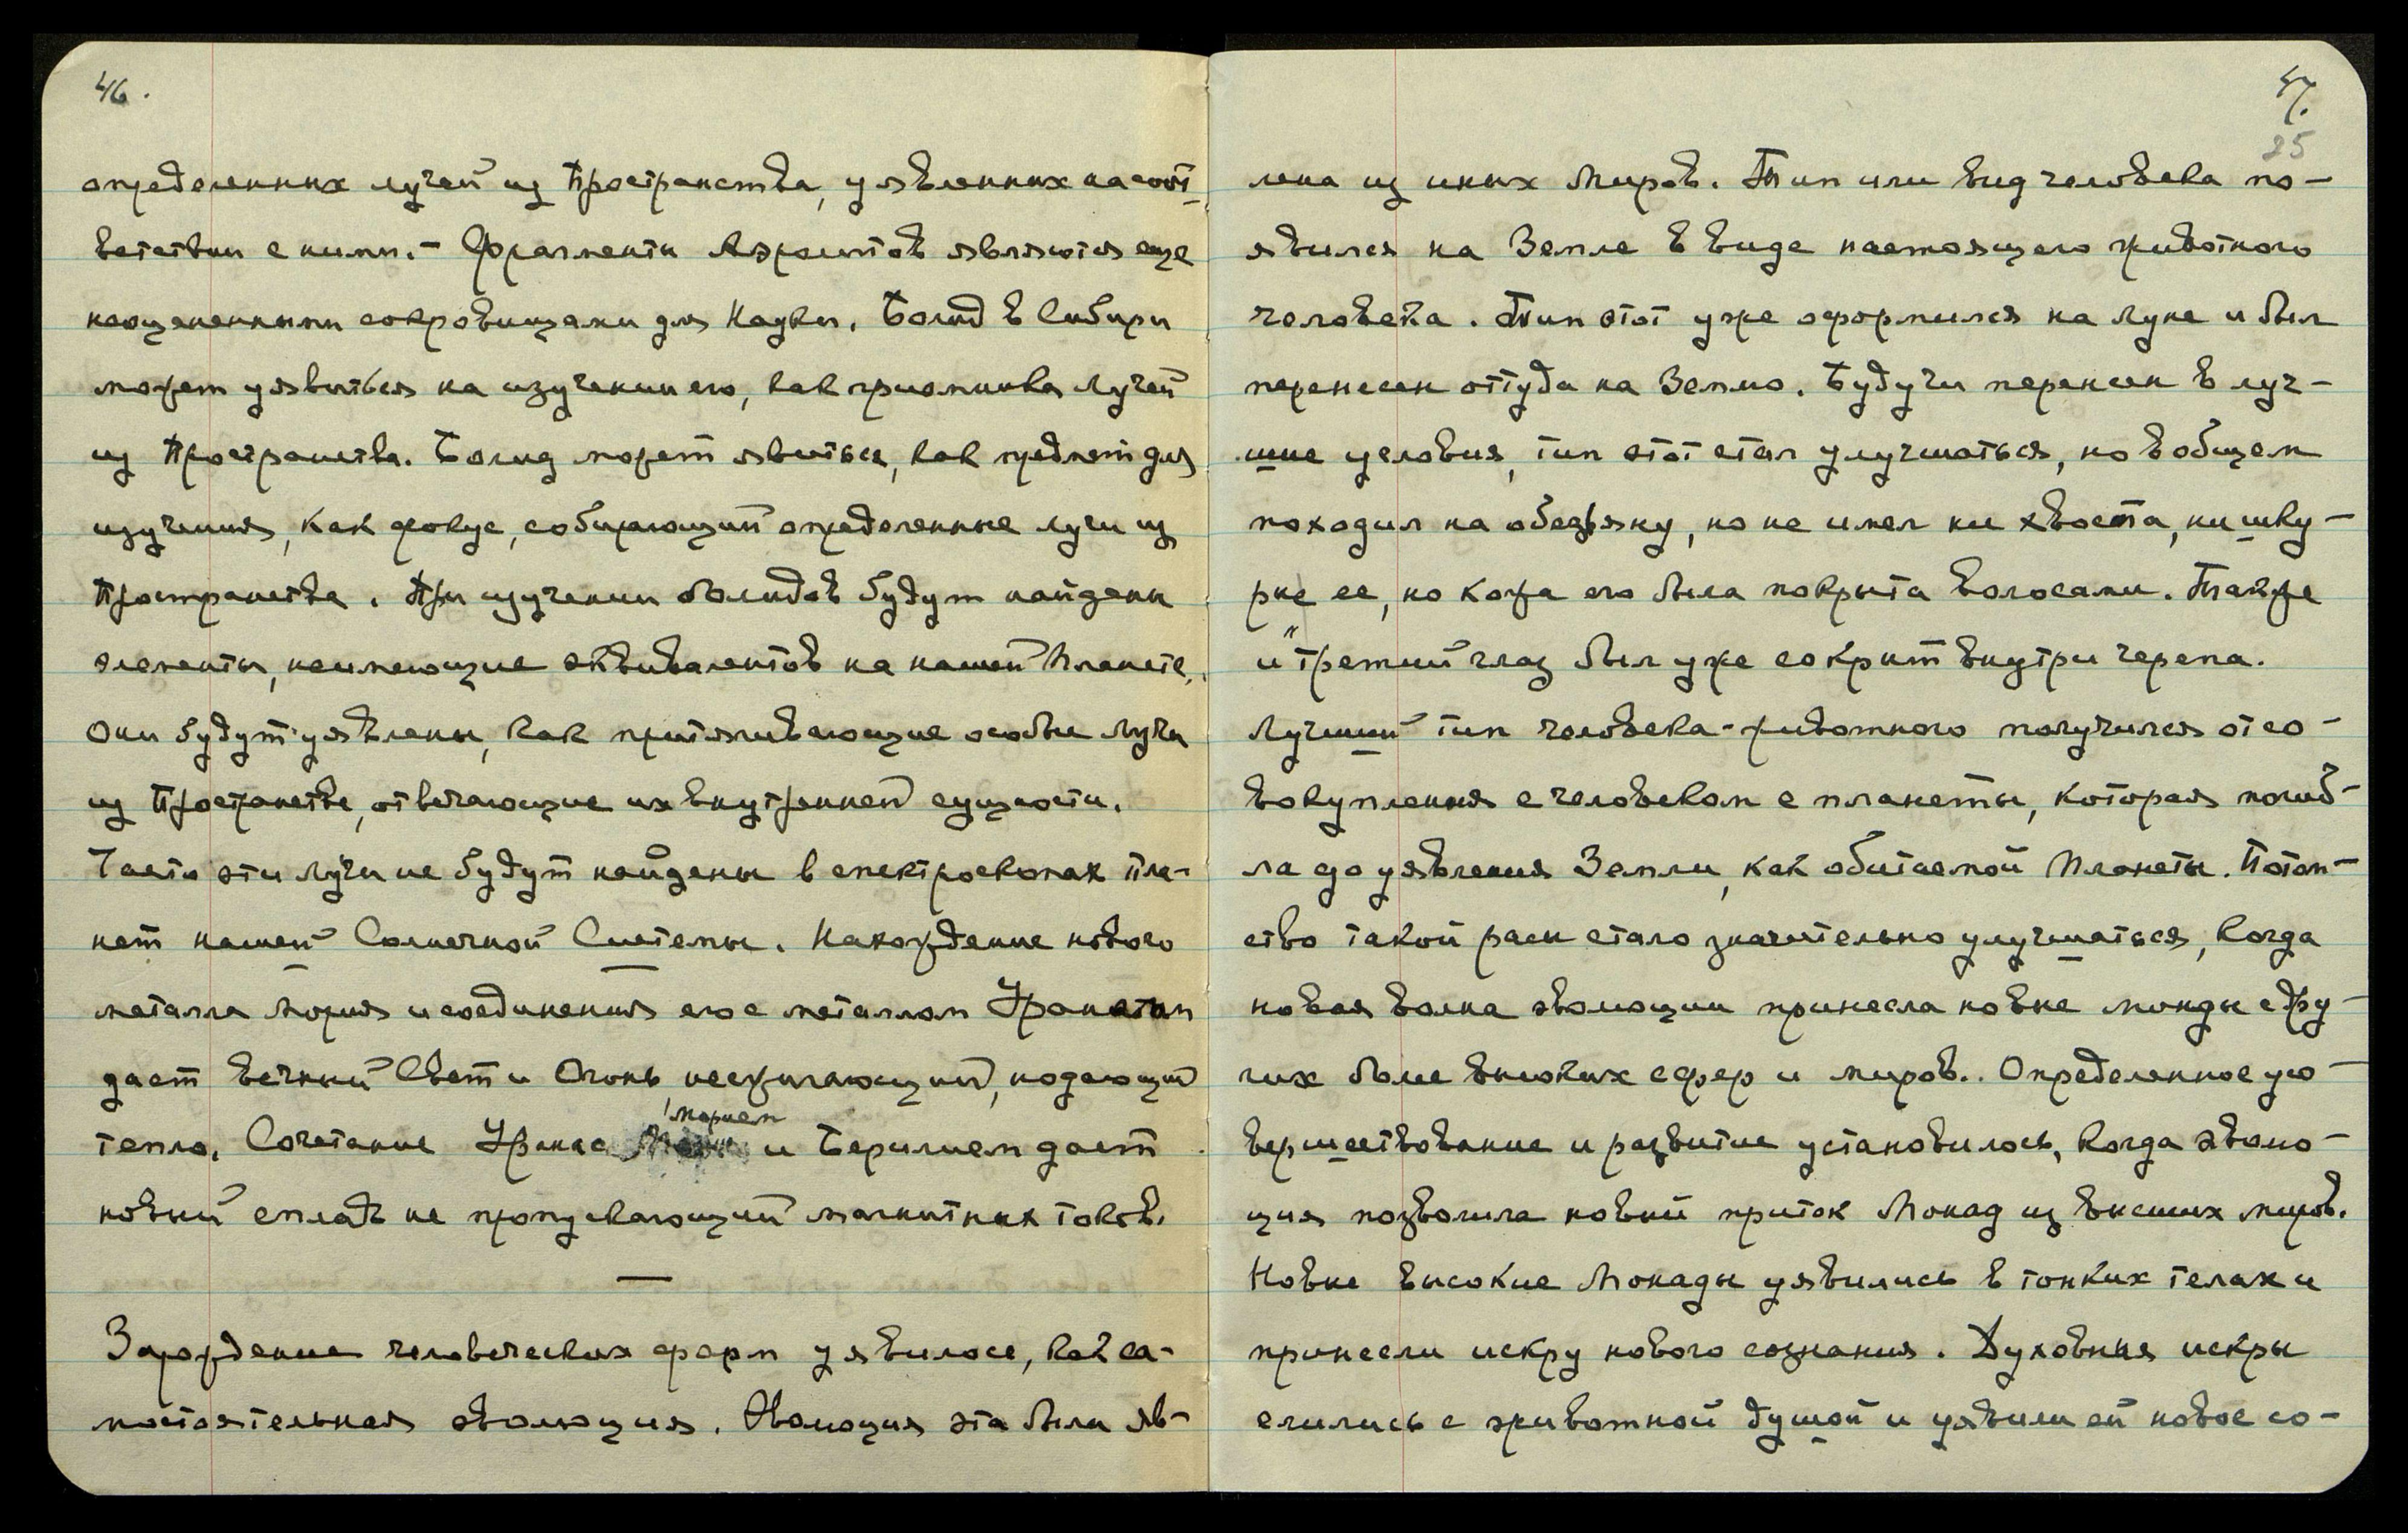 46.
определенных лучей из Пространства, уявленных на соот-
ветствии с ними. – Фрагменты Аэролитов являются еще
неоцененными сокровищами для Науки. Болид в Сибири
может уявиться на изучении его, как приемника Лучей
из Пространства. Болид может явиться, как предмет для
изучения, как фокус, собирающий определенные лучи из
Пространства. При изучении болидов будут найдены
элементы, неимеющие эквивалентов на нашей Планете.
Они будут уявлены, как притягивающие особые Лучи
из Пространства, отвечающие их внутренней сущности.
Часто эти Лучи не будут найдены в спектроскопах пла-
нет нашей Солнечной Системы. Нахождение нового
металла Мория и соединения его с металлом
дает вечный Свет и Огонь несжигающий, недающий
тепло. Сочетание Урана с Морием и Бериллием дает
новый сплав не пропускающий магнитных токов.
—
Зарождение человеческих форм уявилось, как са-
мостоятельная эволюция. Эволюция эта была яв-
47.
25
лена из иных Миров. Тип или вид человека по-
явился на Земле в виде настоящего животного
человека. Тип этот уже оформился на Луне и был
перенесен оттуда на Землю. Будучи перенесен в луч-
шие условия, тип этот стал улучшаться, но в общем
походил на обезьяну, но не имел ни хвоста, ни шку-
рне ее, но кожа его была покрыта волосами. Также
и "третий глаз был уже сокрыт внутри черепа.
Лучший тип человека-животного получился от со-
вокупления с человеком с планеты, которая погиб-
ла до уявления Земли, как обитаемой Планеты. Потом-
ство такой расы стало значительно улучшаться, когда
новая волна эволюции принесла новые монады с дру-
гих более высоких сфер и миров.. Определенное усо-
вершествование и развитие установилось, когда эволю-
ция позволила новый приток Монад из высших миров.
Новые высокие Монады уявились в тонких телах и
принесли искру нового сознания. Духовныя искры
слились с животной душой и уявили ей новое со-